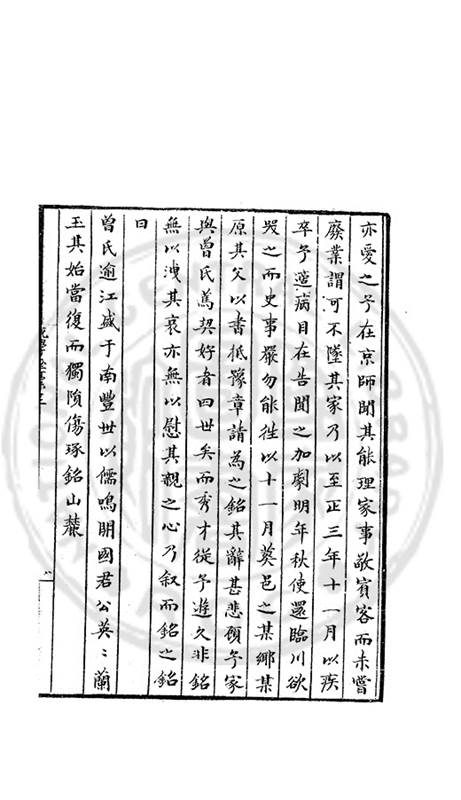 亦愛之予在京師聞其能理家事敬賓客而未嘗
廢業謂可不墜其家乃以至正三年十一月以疾
卒予適病目在告聞之加劇明年秋使還臨川欲
哭之而史事嚴勿能徃以十一月葬邑之某鄉某
原其父以書抵豫章請為之銘其辭甚悲顧予家
與曾氏為契好者四世矣而秀才從予遊久非銘
無以洩其哀亦無以慰其親之心乃叙而銘之銘
曰
曾氏逾江盛于南豐世以儒鳴朋國君公英〻蘭
玉其始當復而獨隕傷琢銘山麓